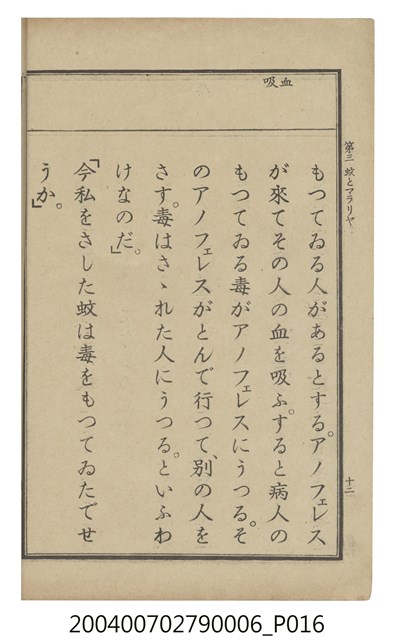 第三 蚊とマラリヤ
十二
血
吸
もつてゐる人があるとする。アノフェレス
が來てその人の血を吸ふ。すると病人の
もつてゐる毒がアノフェレスにうつる。そ
のアノフェレスがとんで行つて、別の人を
さす。毒はさゝれた人にうつる。といふわ
けなのだ。」
「今私をさした蚊は毒をもつてゐたでせ
うか。」
200400702790006_P016